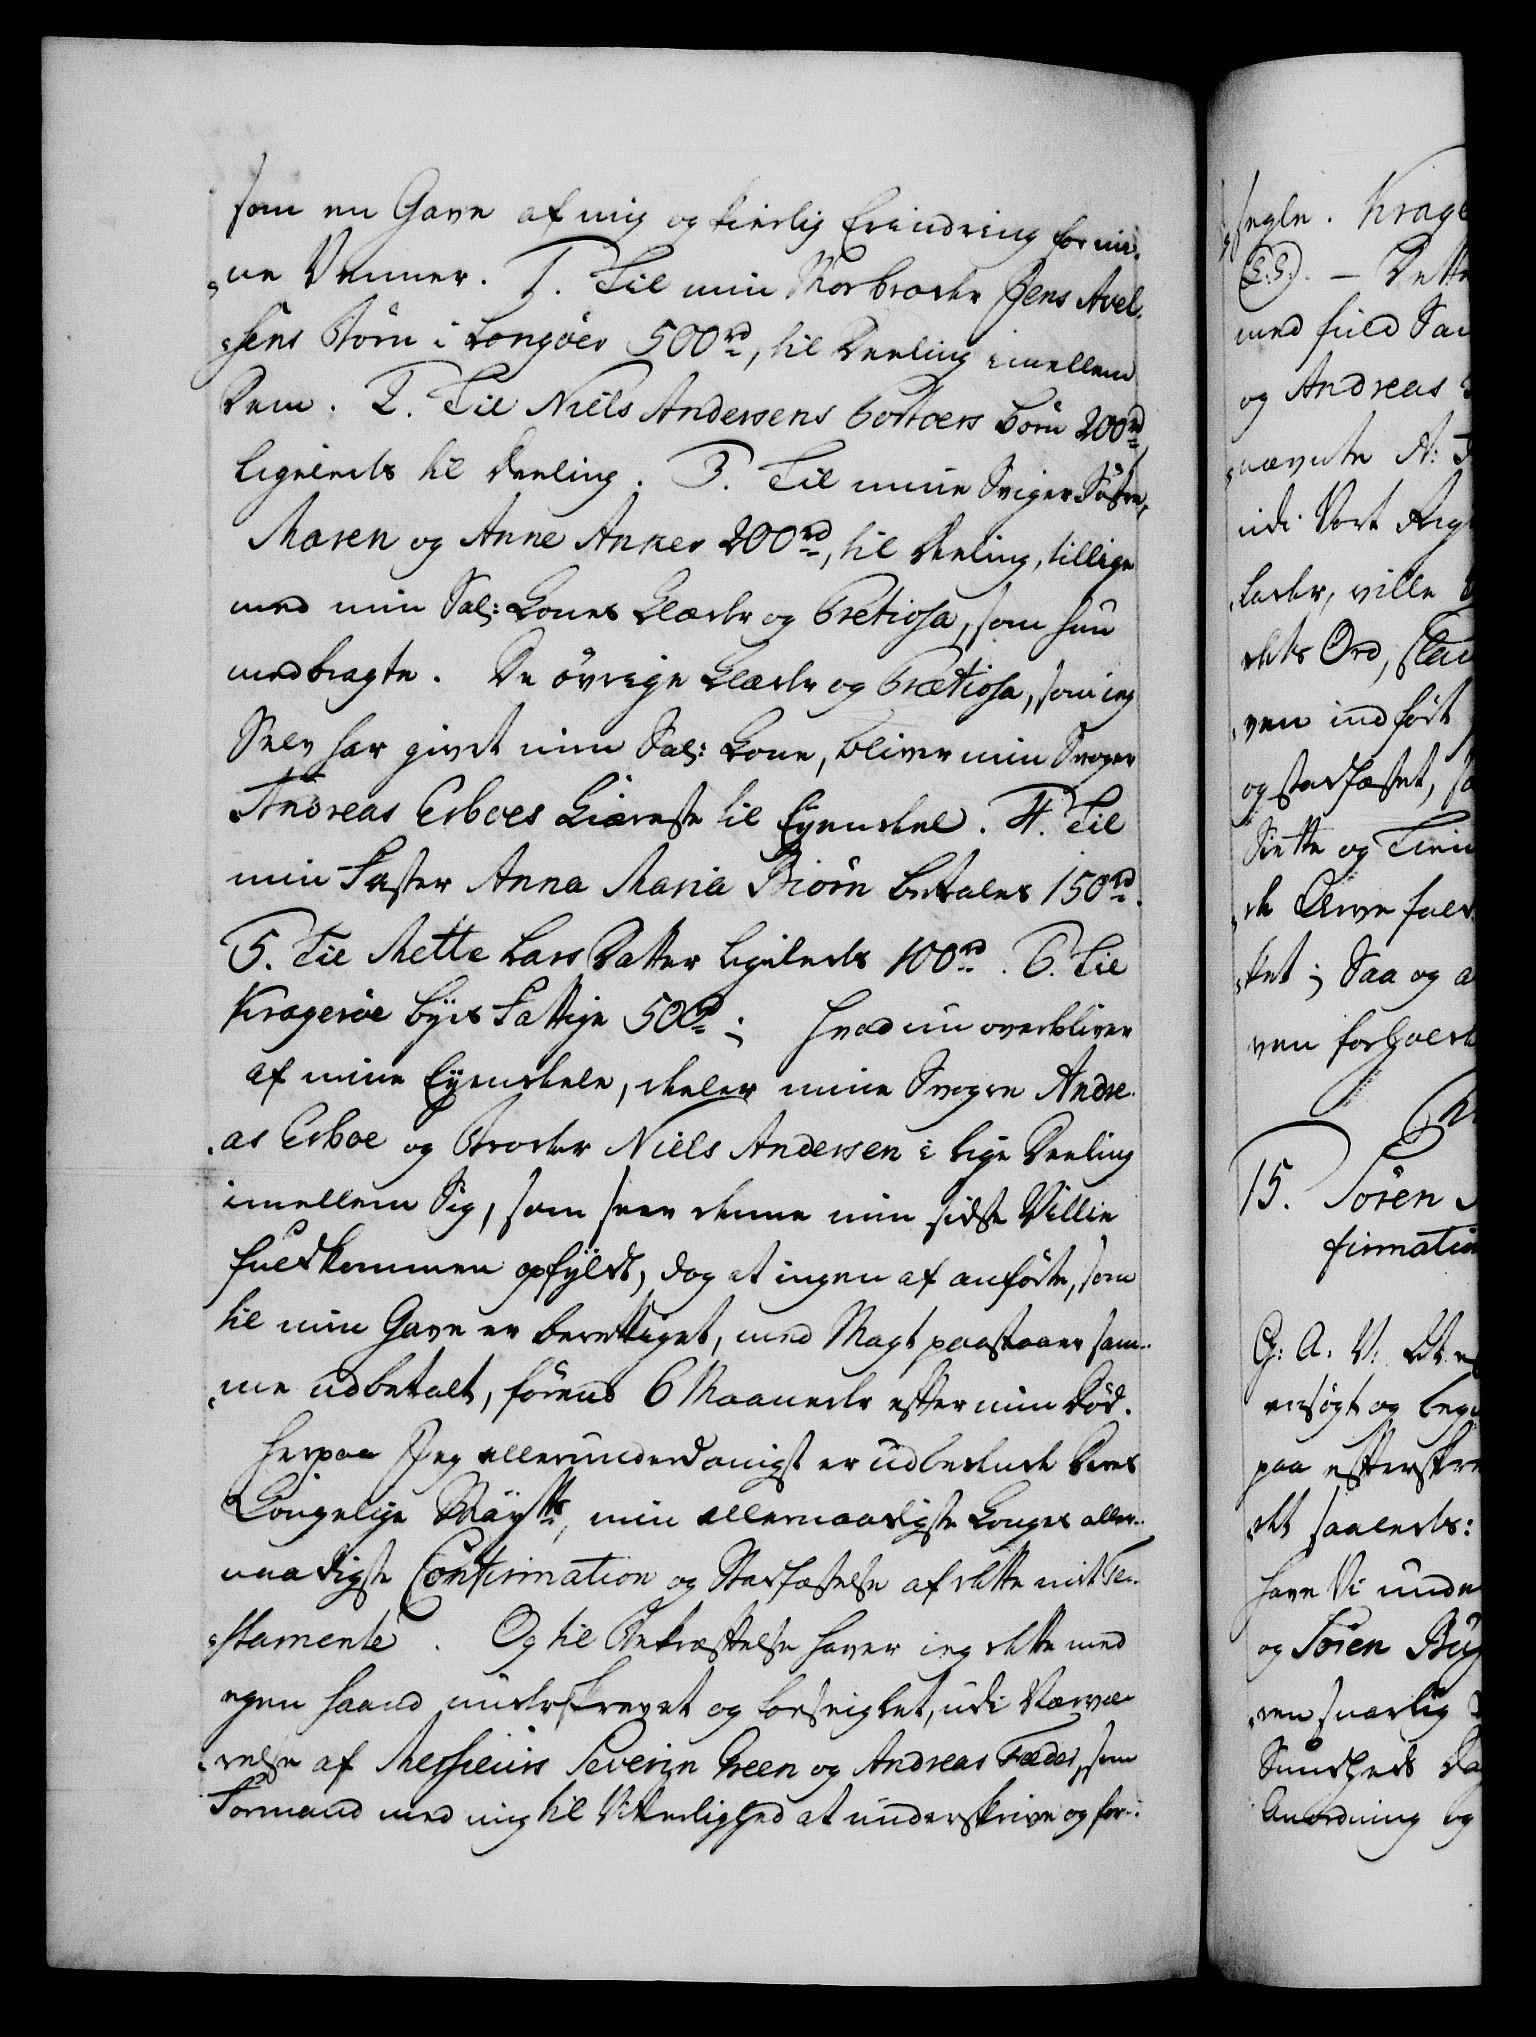 som en Gave af mig og kierlig Erindring for mi-
ne Venner. 1. Til min Morbroder Jens Avel-
sens Börn i Langöes 500rd, til Deeling imellem
Dem. 2. Til Niels Andersens Börn 200rd
ligeleeds til Deeling. 3. Til mine Sviger Söstre,
Maren og Anne Anker 200rd, til Deeling, tillige
med min Sal: Kones Klæder og Pretiosa, som hun
medbragte. De övrige Klæder og Prætiosa, som ieg
Selv har givet min Sal: Kone, bliver min Svoger
Andreas Erboes Kiæreste til Eyendeel. 4. Til
min Faster Anna Maria Biörn betales 150rd.
5. Til Mette Lars Datter ligeleeds 100rd. 6. Til
Kragerøe Byes Fattige 50rd; Hvad nu overbliver
af mine Eyendeele, deeler mine Svogre Andre-
as Erboe og Broder Niels Andersen i lige Deeling
imellem Sig, som seer denne min sidste Villie
fuldkommen opfyldt, dog at ingen af anförte, som
til min Gave er berettiget, med Magt paastaaer sam-
me udbetalt, förend 6 Maaneder efter min Död.
Herpaa Jeg allerunderdanigst er udbedende Deres
Kongelige Mayts, min allernaadigste Konges aller-
naadigste Confirmation og Stadfæstelse af dette mit Te-
stamente. Og til Bekræftelse haver ieg dette med
egen Haand underskrevet og forseiglet, udi Nærvæ-
relse af Messieurs Severin Green og Andreas Fæder, som
Formænd med mig til Vitterlighed at underskrive og for-
segle. Krage
(L.S.). — Dette
med fuld
og Andreas
nævnte A:
udi Vort
leeder, ville
dets Ord,
ven indfört
og stadfæstet,
Siette og
de Arve
ket; Saa og a
ven forholde
15. Sören
firmation
G: A. V: At
ansögt og bega
paa efterskre
det saaledes:
have Vi unde
og Sören
ren svarlig
Sundheds Da
Anordning og